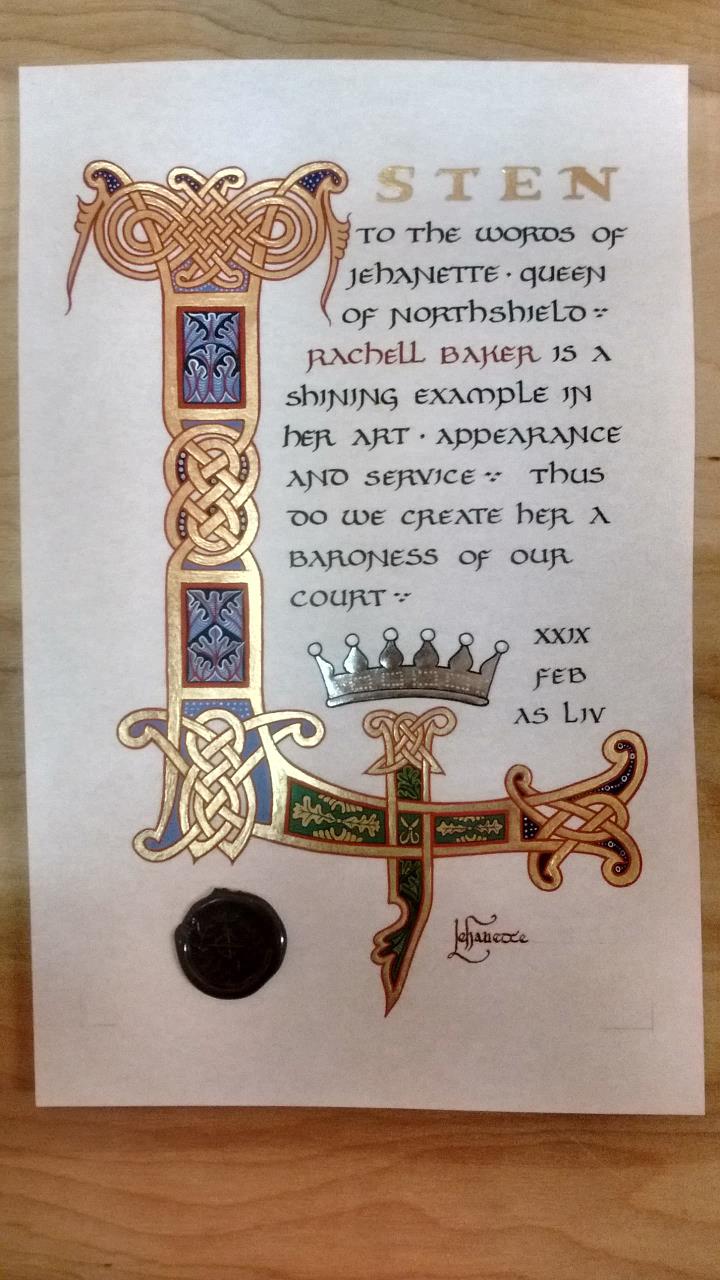 LISTEN
TO THE WORDS OF
JEHANETTE · QUEEN
OF NORTHSHIELD
RACHELL BAKER IS A
SHINING EXAMPLE IN
HER ART · APPEARANCE
AND SERVICE THUS
DO WE CREATE HER A
BARONESS OF OUR
COURT
XXIX
FEB
AS LIV
Jehanette